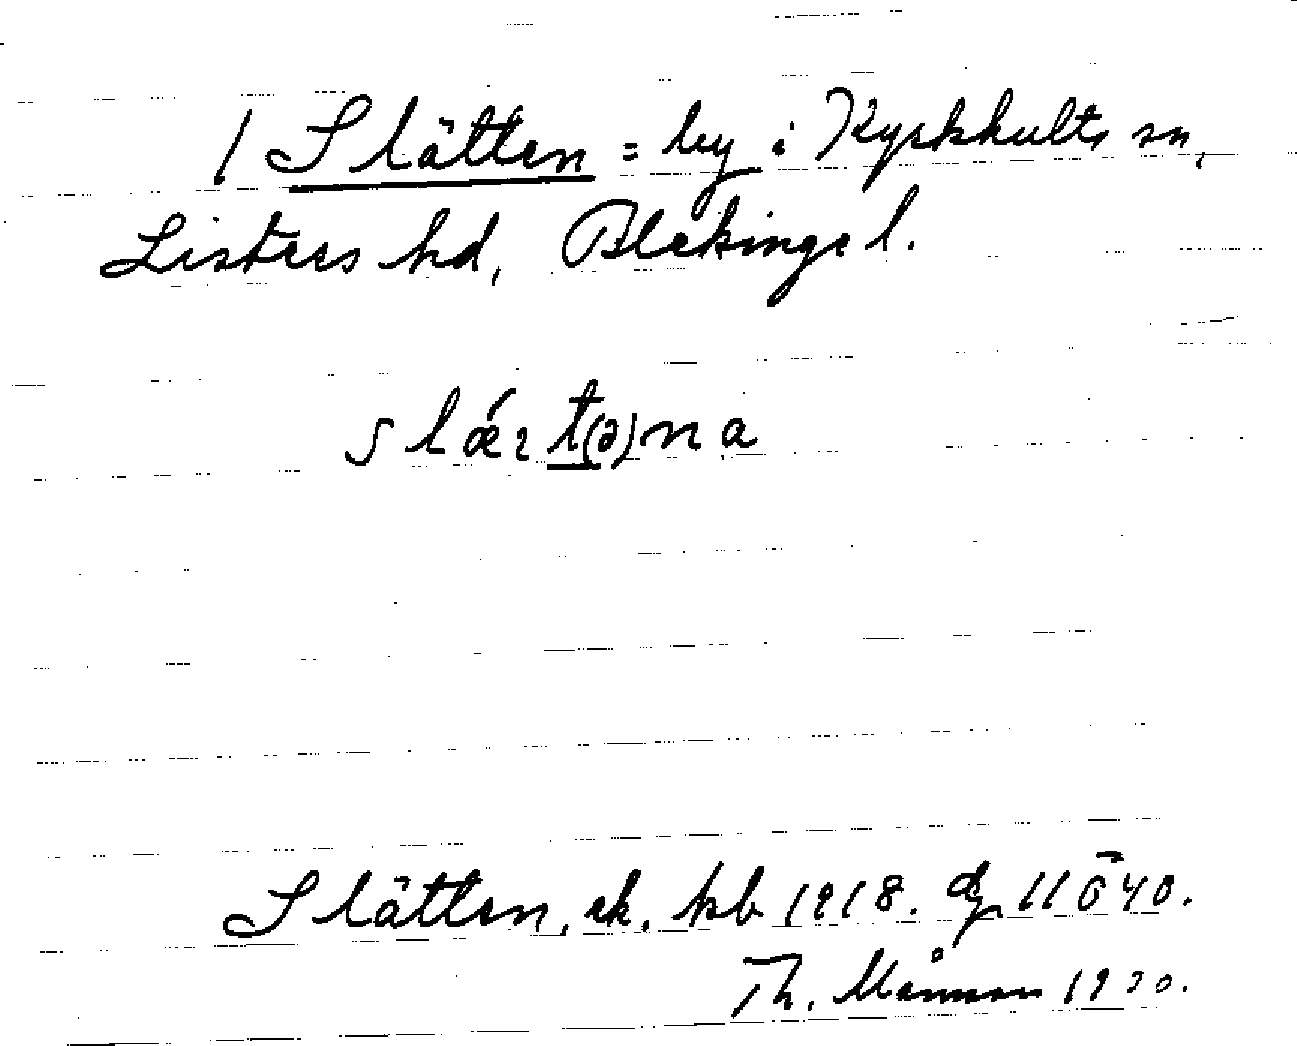 1 Slätten = by i Kyrkhults sn,
Listers hd, Blekinge l.
slǽ2t(ə)na
Slätten, ek. kb 1918. dg 11640.
Th. Månsson 1930.